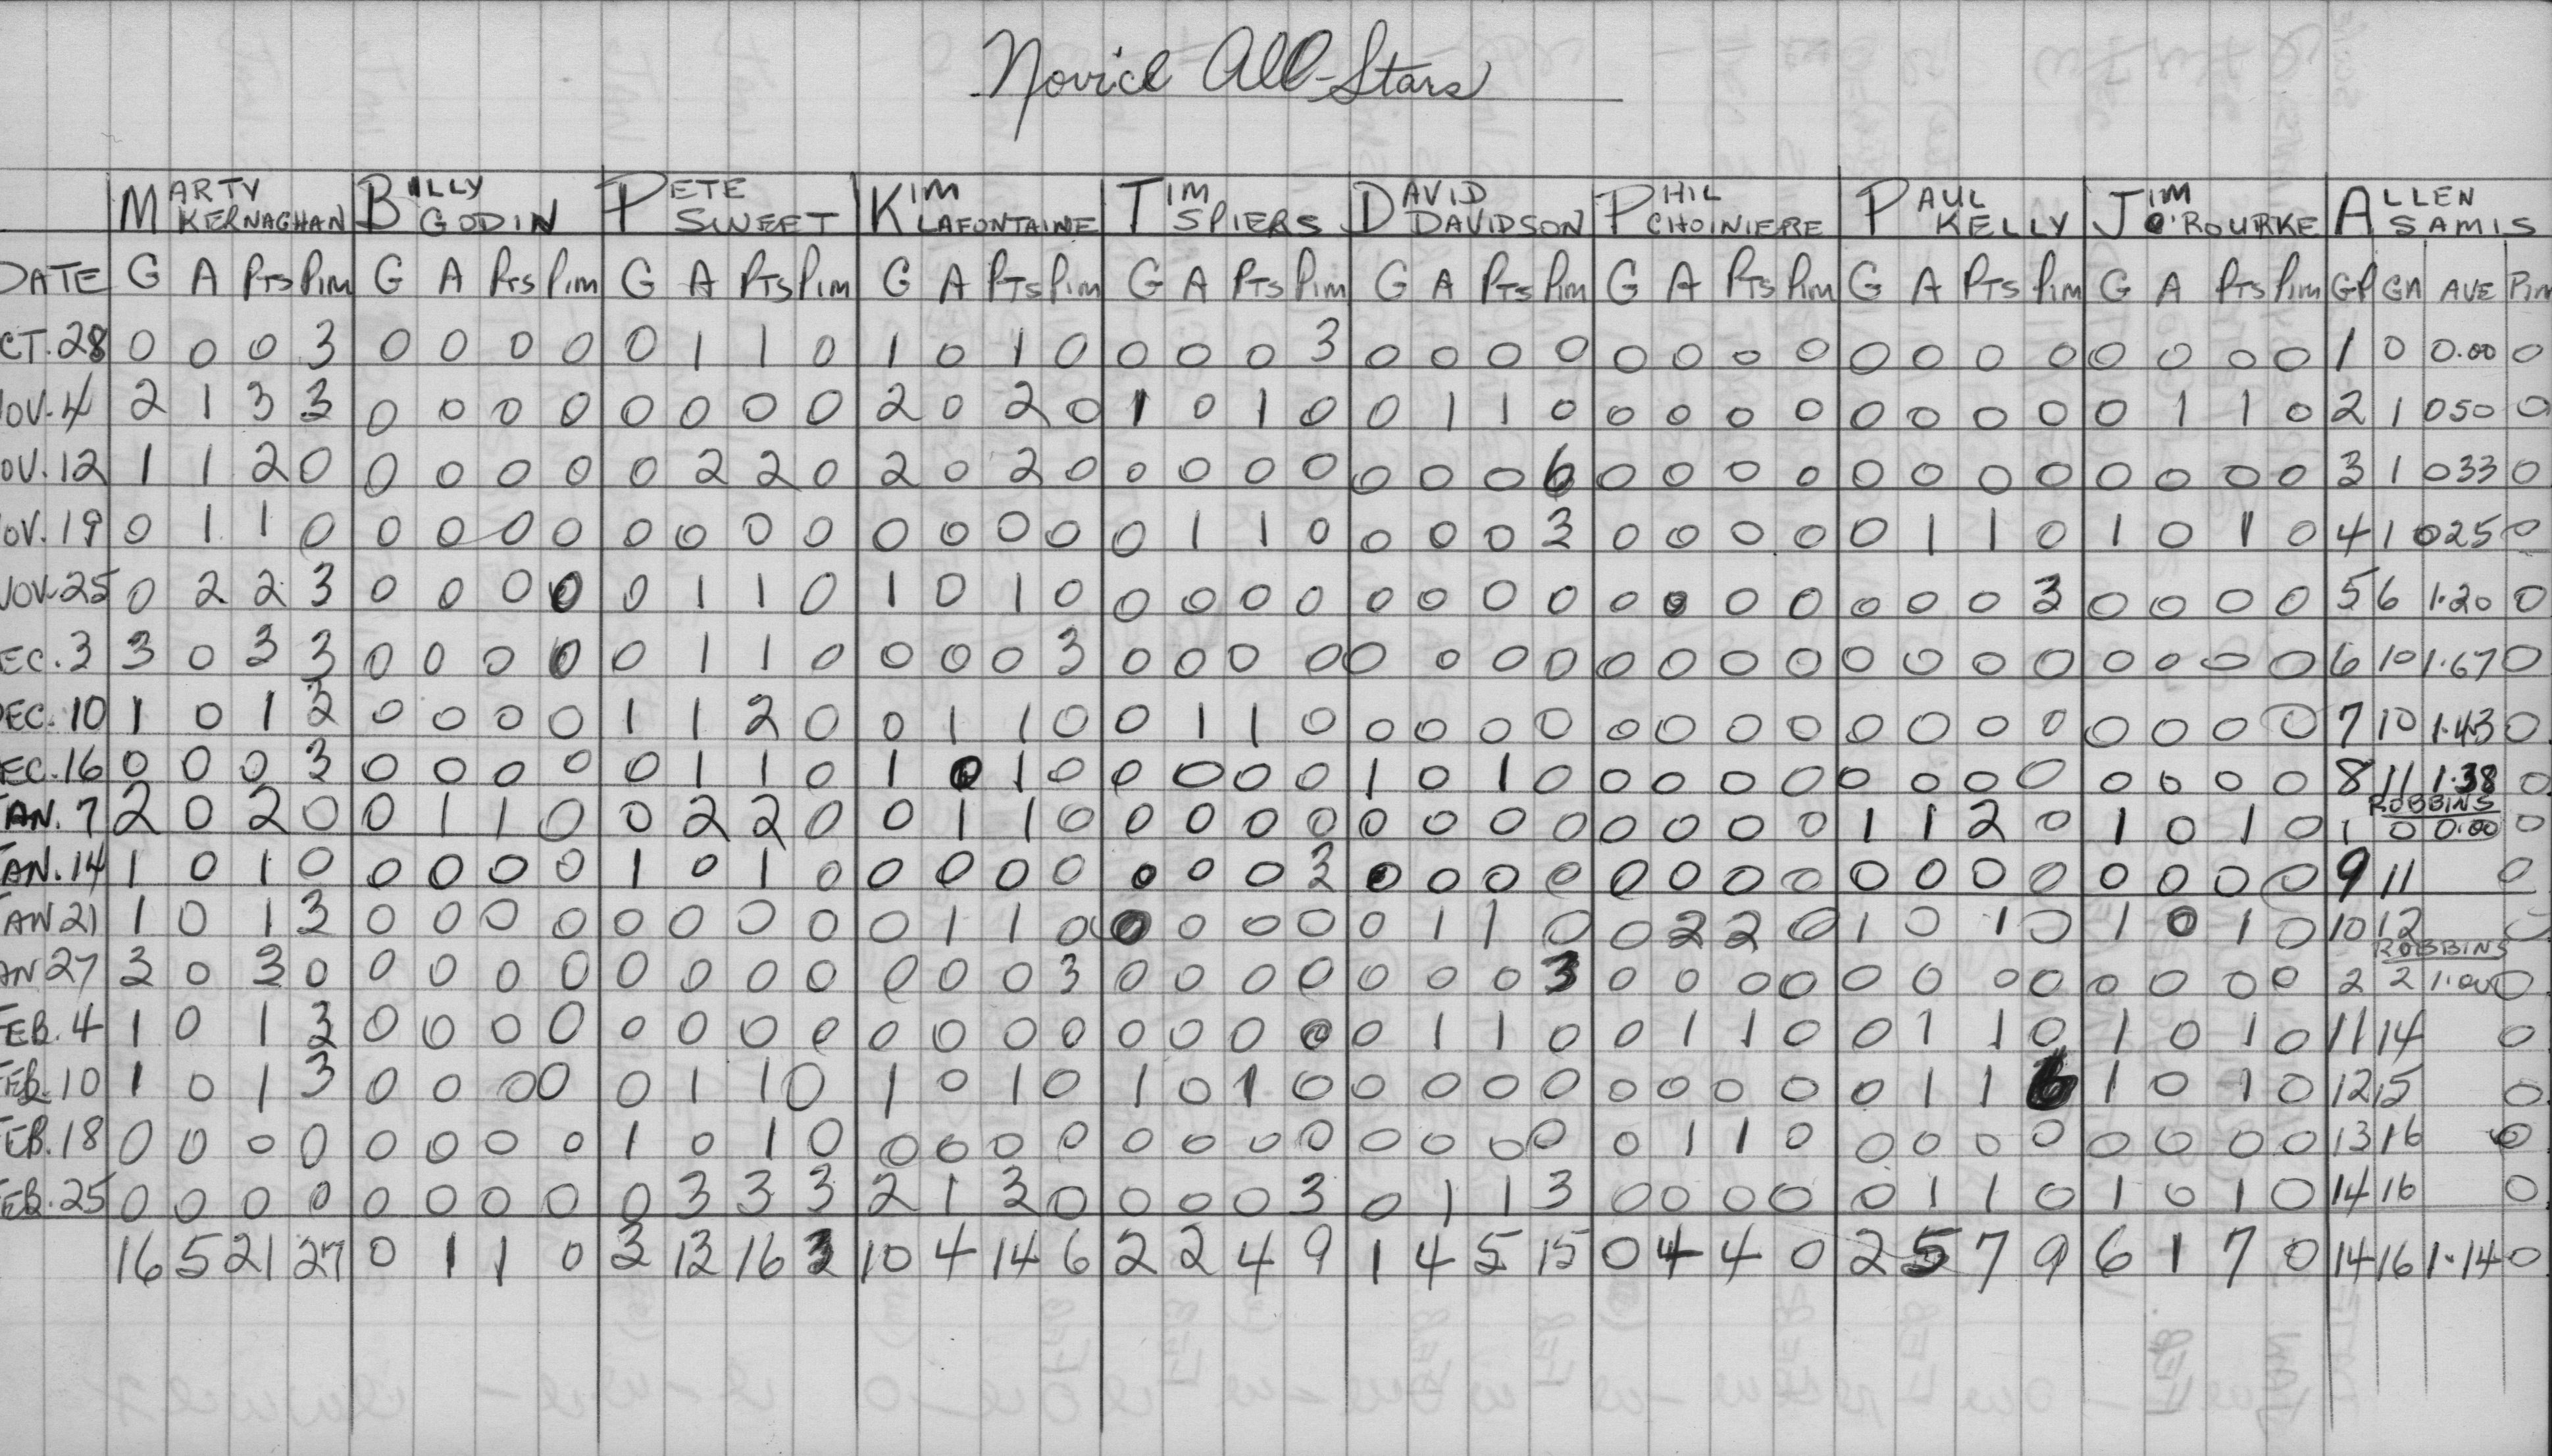 Novice All-Stars
MARTY KERNAGHAN BILLY GODIN PETE SWEET KIM LAFONTAINE TIM SPIERS DAVID DAVIDSON PHIL CHOINIERE PAUL KELLY JIM O'ROURKE ALLEN SAMIS
DATE G A PTS Pim G A PTS Pim G A PTS Pim G A PTS Pim G A PTS Pim G A PTS Pim G A PTS Pim G A PTS Pim G A PTS Pim GP GA AVE Pim
CT.28 0 0 0 3 0 0 0 0 0 1 1 0 1 0 1 0 0 0 0 3 0 0 0 0 0 0 0 0 0 0 0 0 0 0 0 0 1 0 0.00 0
OV.4 2 1 3 3 0 0 0 0 0 0 0 0 2 0 2 0 1 0 1 0 0 1 1 0 0 0 0 0 0 0 0 0 0 1 1 0 2 1 050 0
OV.12 1 1 2 0 0 0 0 0 0 2 2 0 2 0 2 0 0 0 0 0 0 0 0 6 0 0 0 0 0 0 0 0 0 0 0 0 3 1 033 0
OV.19 0 1 1 0 0 0 0 0 0 0 0 0 0 0 0 0 0 1 1 0 0 0 0 3 0 0 0 0 0 1 1 0 1 0 1 0 4 1 025 0
NOV.25 0 2 2 3 0 0 0 0 0 1 1 0 1 0 1 0 0 0 0 0 0 0 0 0 0 0 0 0 0 0 0 3 0 0 0 0 5 6 1.20 0
EC.3 3 0 3 3 0 0 0 0 0 1 1 0 0 0 0 3 0 0 0 0 0 0 0 0 0 0 0 0 0 0 0 0 0 0 0 0 6 10 1.67 0
DEC.10 1 0 1 3 0 0 0 0 1 1 2 0 0 1 1 0 0 1 1 0 0 0 0 0 0 0 0 0 0 0 0 0 0 0 0 0 7 10 1.43 0
EC.16 0 0 0 3 0 0 0 0 0 1 1 0 1 0 1 0 0 0 0 0 1 0 1 0 0 0 0 0 0 0 0 0 0 0 0 0 8 11 1.38 0
ROBBINS
JAN.7 2 0 2 0 0 1 1 0 0 2 2 0 0 1 1 0 0 0 0 0 0 0 0 0 0 0 0 0 1 1 2 0 1 0 1 0 1 0 0.00 0
JAN.14 1 0 1 0 0 0 0 0 1 0 1 0 0 0 0 0 0 0 0 3 0 0 0 0 0 0 0 0 0 0 0 0 0 0 0 0 9 11 0
JAN 21 1 0 1 3 0 0 0 0 0 0 0 0 0 1 1 0 0 0 0 0 0 1 1 0 0 2 2 0 1 0 1 0 1 0 1 0 10 12 0
ROBBINS
AN 27 3 0 3 0 0 0 0 0 0 0 0 0 0 0 0 3 0 0 0 0 0 0 0 3 0 0 0 0 0 0 0 0 0 0 0 0 2 2 1.00 0
FEB.4 1 0 1 3 0 0 0 0 0 0 0 0 0 0 0 0 0 0 0 0 0 1 1 0 0 1 1 0 0 1 1 0 1 0 1 0 11 14 0
FEB.10 1 0 1 3 0 0 0 0 0 1 1 0 1 0 1 0 1 0 1 0 0 0 0 0 0 0 0 0 0 1 1 6 1 0 1 0 12 15 0
FEB.18 0 0 0 0 0 0 0 0 1 0 1 0 0 0 0 0 0 0 0 0 0 0 0 0 0 1 1 0 0 0 0 0 0 0 0 0 13 16 0
FEB.25 0 0 0 0 0 0 0 0 0 3 3 3 2 1 3 0 0 0 0 3 0 1 1 3 0 0 0 0 0 1 1 0 1 0 1 0 14 16 0
16 5 21 27 0 1 1 0 3 13 16 3 10 4 14 6 2 2 4 9 1 4 5 15 0 4 4 0 2 5 7 9 6 1 7 0 14 16 1.14 0